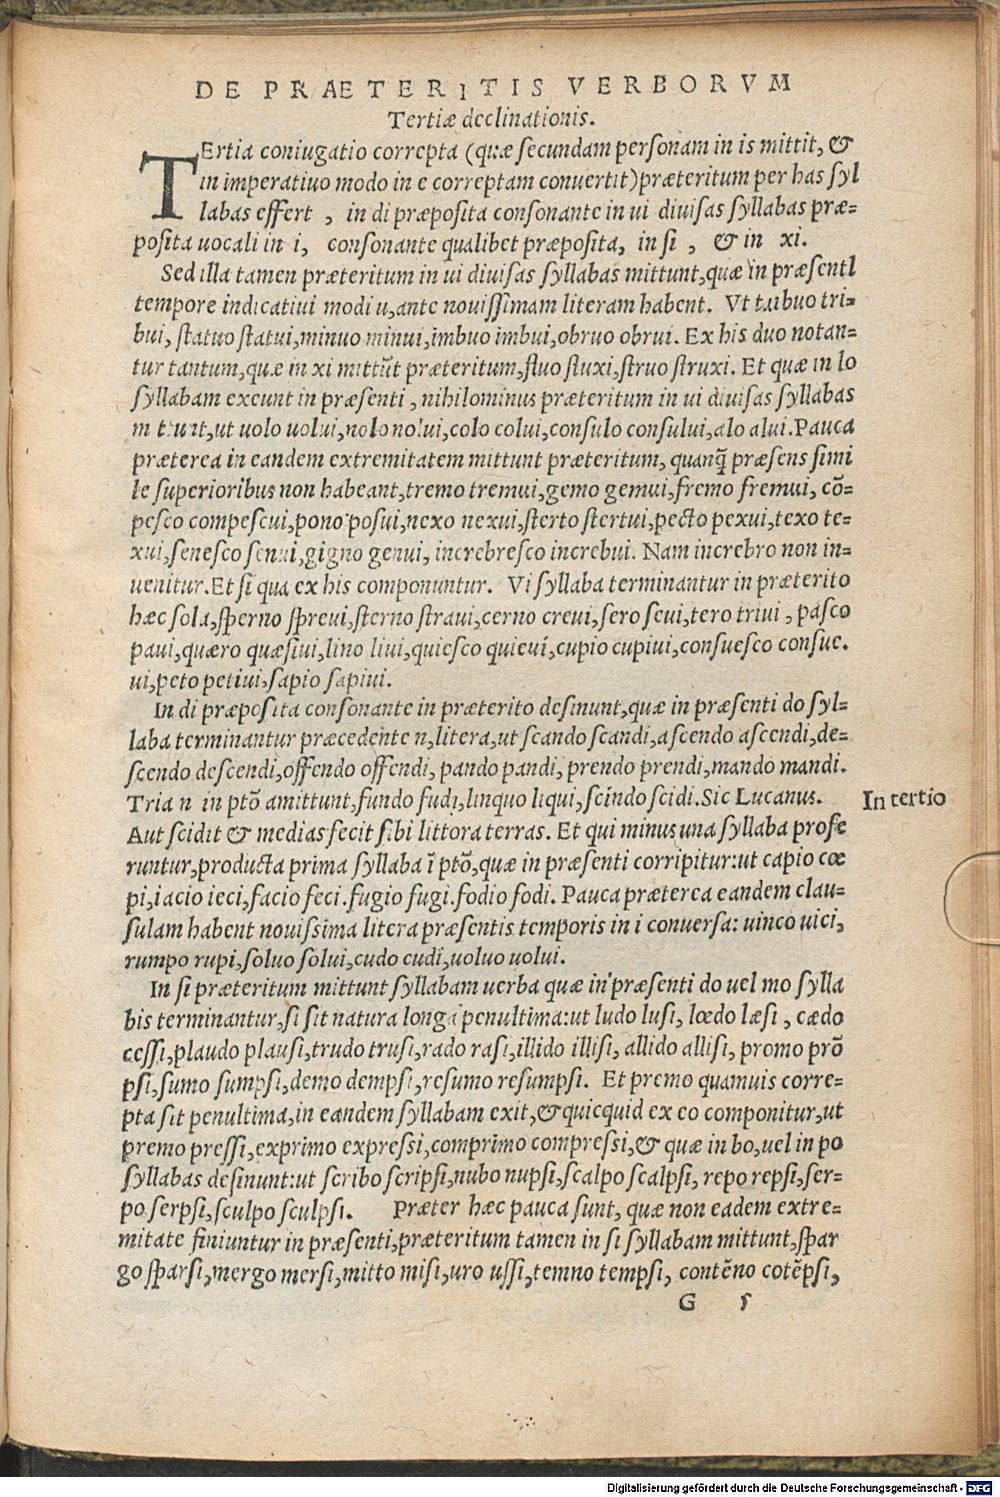 DE PRÆTERITIS VERBORVM
Tertiæ declinationis.
TErtia coniugatio correpta (quæ ſecundam perſonam in is mittit, &
in imperatiuo modo in e correptam conuertit) præteritum per has ſyl
labas effert , in di præpoſita conſonante in ui diuiſas ſyllabas præ=
poſita uocali in i, conſonante qualibet præpoſita, in ſi , & in xi.
Sed illa tamen præteritum in ui diuiſas ſyllabas mittunt,quæ in præſenti
tempore indicatiui modi u,ante nouiſſimam literam habent. Vt tribuo tri=
bui, ſtatuo ſtatui,minuo minui,imbuo imbui,obruo obrui. Ex his duo notan=
tur tantum,quæ in xi mittūt præteritum,fluo fluxi,ſtruo ſtruxi. Et quæ in lo
ſyllabam exeunt in præſenti , nihilominus præteritum in ui diuiſas ſyllabas
mittunt,ut uolo uolui,nolo nolui,colo colui,conſulo conſului,alo alui.Pauca
præterea in eandem extremitatem mittunt præteritum, quanq̃ præſens ſimi
le ſuperioribus non habeant,tremo tremui,gemo gemui,fremo fremui, cō=
peſco compeſcui,pono poſui,nexo nexui,ſterto ſtertui,pecto pexui,texo te=
xui,ſeneſco ſenui,gigno genui, increbreſco increbui. Nam increbro non in=
uenitur.Et ſi qua ex his componuntur. Vi ſyllaba terminantur in præterito
hæc ſola,ſperno ſpreui,ſterno ſtraui,cerno creui,ſero ſeui,tero triui , paſco
paui,quæro quæſiui,lino liui,quieſco quieui,cupio cupiui,conſueſco conſue.
ui,peto petiui,ſapio ſapiui.
In di præpoſita conſonante in præterito deſinunt,quæ in præſenti do ſyl=
laba terminantur præcedente n,litera,ut ſcando ſcandi,aſcendo aſcendi,de=
ſcendo deſcendi,offendo offendi, pando pandi, prendo prendi,mando mandi.
Tria n in ptō amittunt,fundo fudi,linquo liqui,ſcindo ſcidi.Sic Lucanus.
In tertio
Aut ſcidit & medias fecit ſibi littora terras. Et qui minus una ſyllaba profe
runtur,producta prima ſyllaba ī ptō,quæ in præſenti corripitur:ut capio cœ
pi,iacio ieci,facio feci.fugio fugi.fodio fodi. Pauca præterea eandem clau=
ſulam habent nouiſſima litera præſentis temporis in i conuerſa: uinco uici,
rumpo rupi,ſoluo ſolui,cudo cudi,uoluo uolui.
In ſi præteritum mittunt ſyllabam uerba quæ in præſenti do uel mo ſylla
bis terminantur,ſi ſit natura longa penultima:ut ludo luſi, lœdo læſi , cædo
ceſſi,plaudo plauſi,trudo truſi,rado raſi,illido illiſi, allido alliſi, promo prō
pſi,ſumo ſumpſi,demo dempſi,reſumo reſumpſi. Et premo quamuis corre=
pta ſit penultima,in eandem ſyllabam exit,& quicquid ex eo componitur,ut
premo preſſi,exprimo expreſſi,comprimo compreſſi,& quæ in bo,uel in po
ſyllabas deſinunt:ut ſcribo ſcripſi,nubo nupſi,ſcalpo ſcalpſi, repo repſi,ſer=
po ſerpſi,ſculpo ſculpſi. Præter hæc pauca ſunt, quæ non eadem extre=
mitate finiuntur in præſenti,præteritum tamen in ſi ſyllabam mittunt,ſpar
go ſparſi,mergo merſi,mitto miſi,uro uſſi,temno tempſi, contēno cotēpſi,
G 5
Digitalisierung gefördert durch die Deutsche Forschungsgemeinschaft - DFG